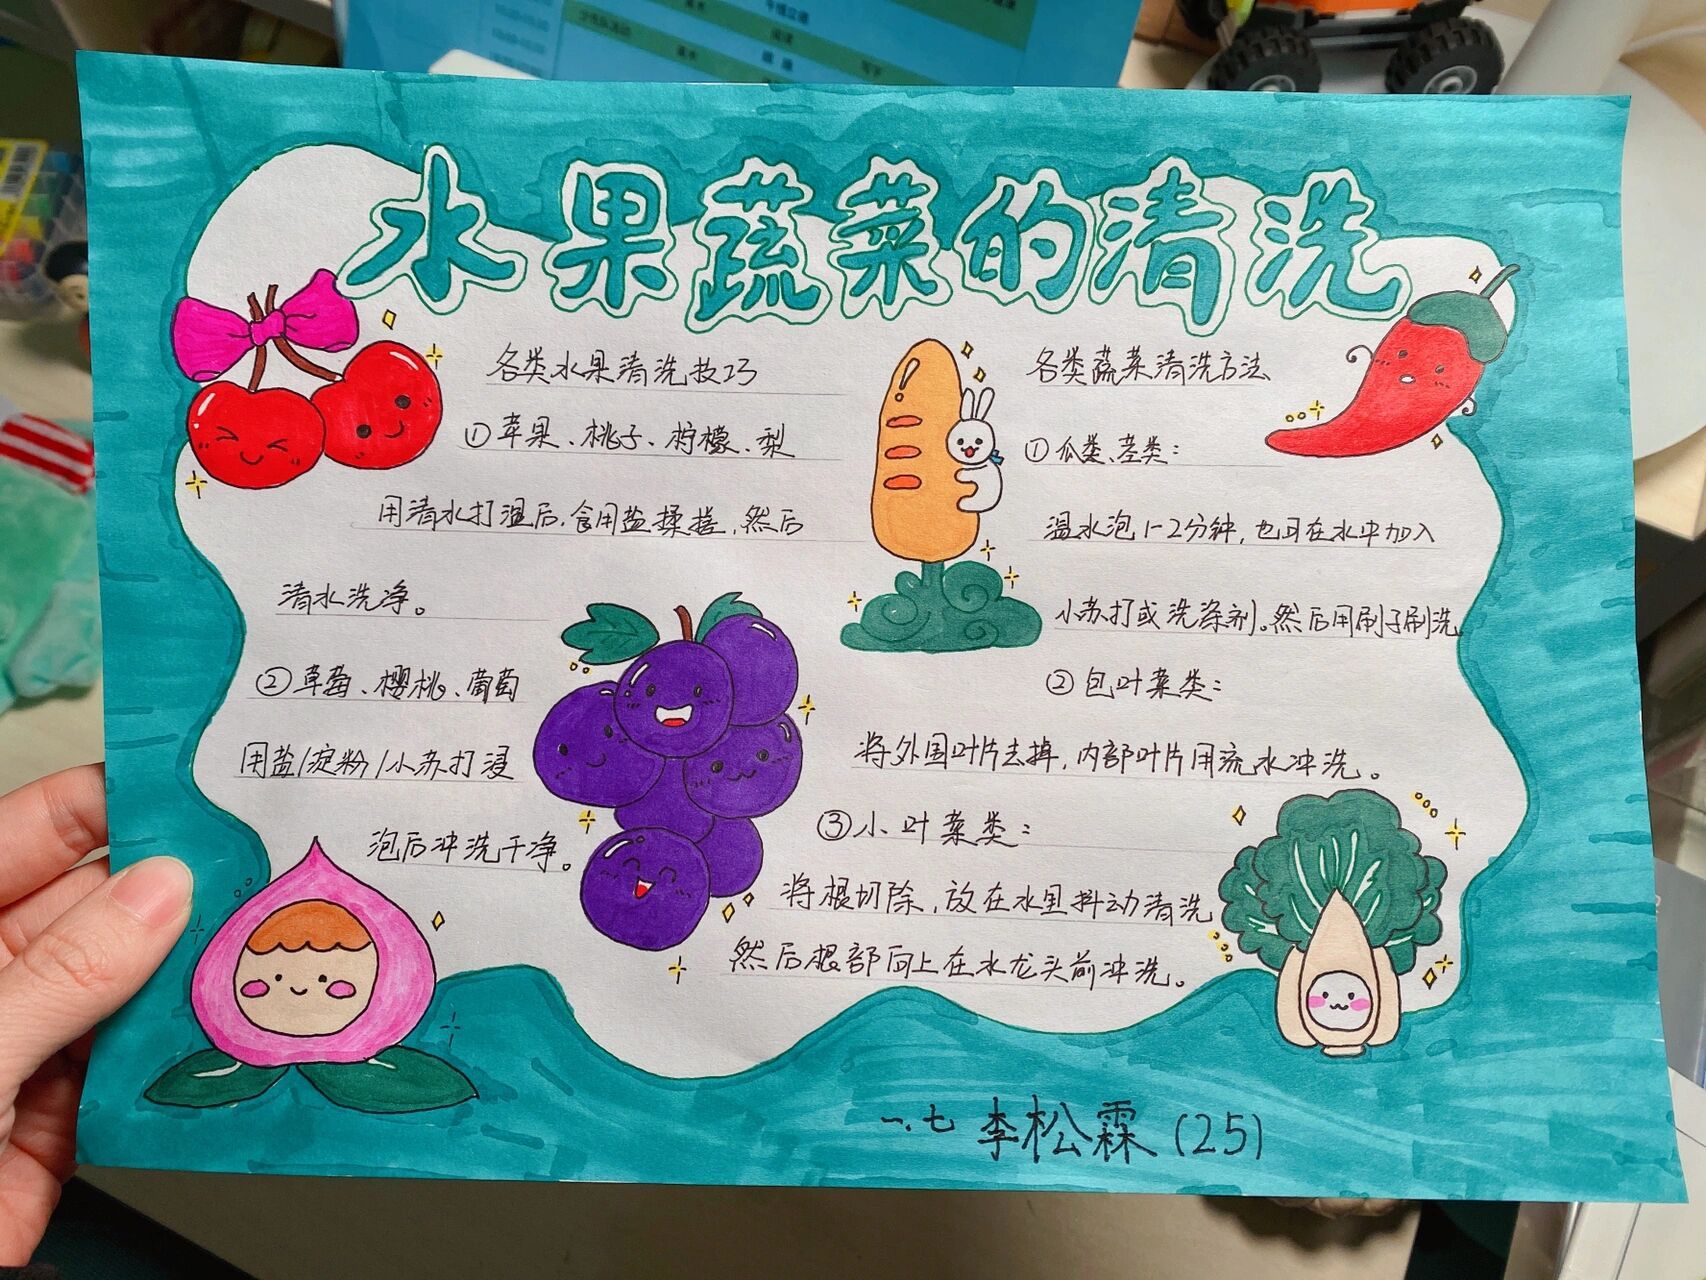 水果蔬菜的清洗
各类水果清洗技巧
①苹果、桃子、柠檬、梨
用清水打湿后,食用盐揉搓,然后
清水洗净。
②草莓、樱桃、葡萄
用盐/淀粉/小苏打浸
泡后冲洗干净。
各类蔬菜清洗方法
①瓜类、茎类:
温水泡1-2分钟,也可在水中加入
小苏打或洗涤剂。然后用刷子刷洗
②包叶菜类:
将外围叶片去掉,内部叶片用流水冲洗。
③小叶菜类:
将根切除,放在水里抖动清洗
然后根部向上在水龙头前冲洗。
一.七 李松霖(25)